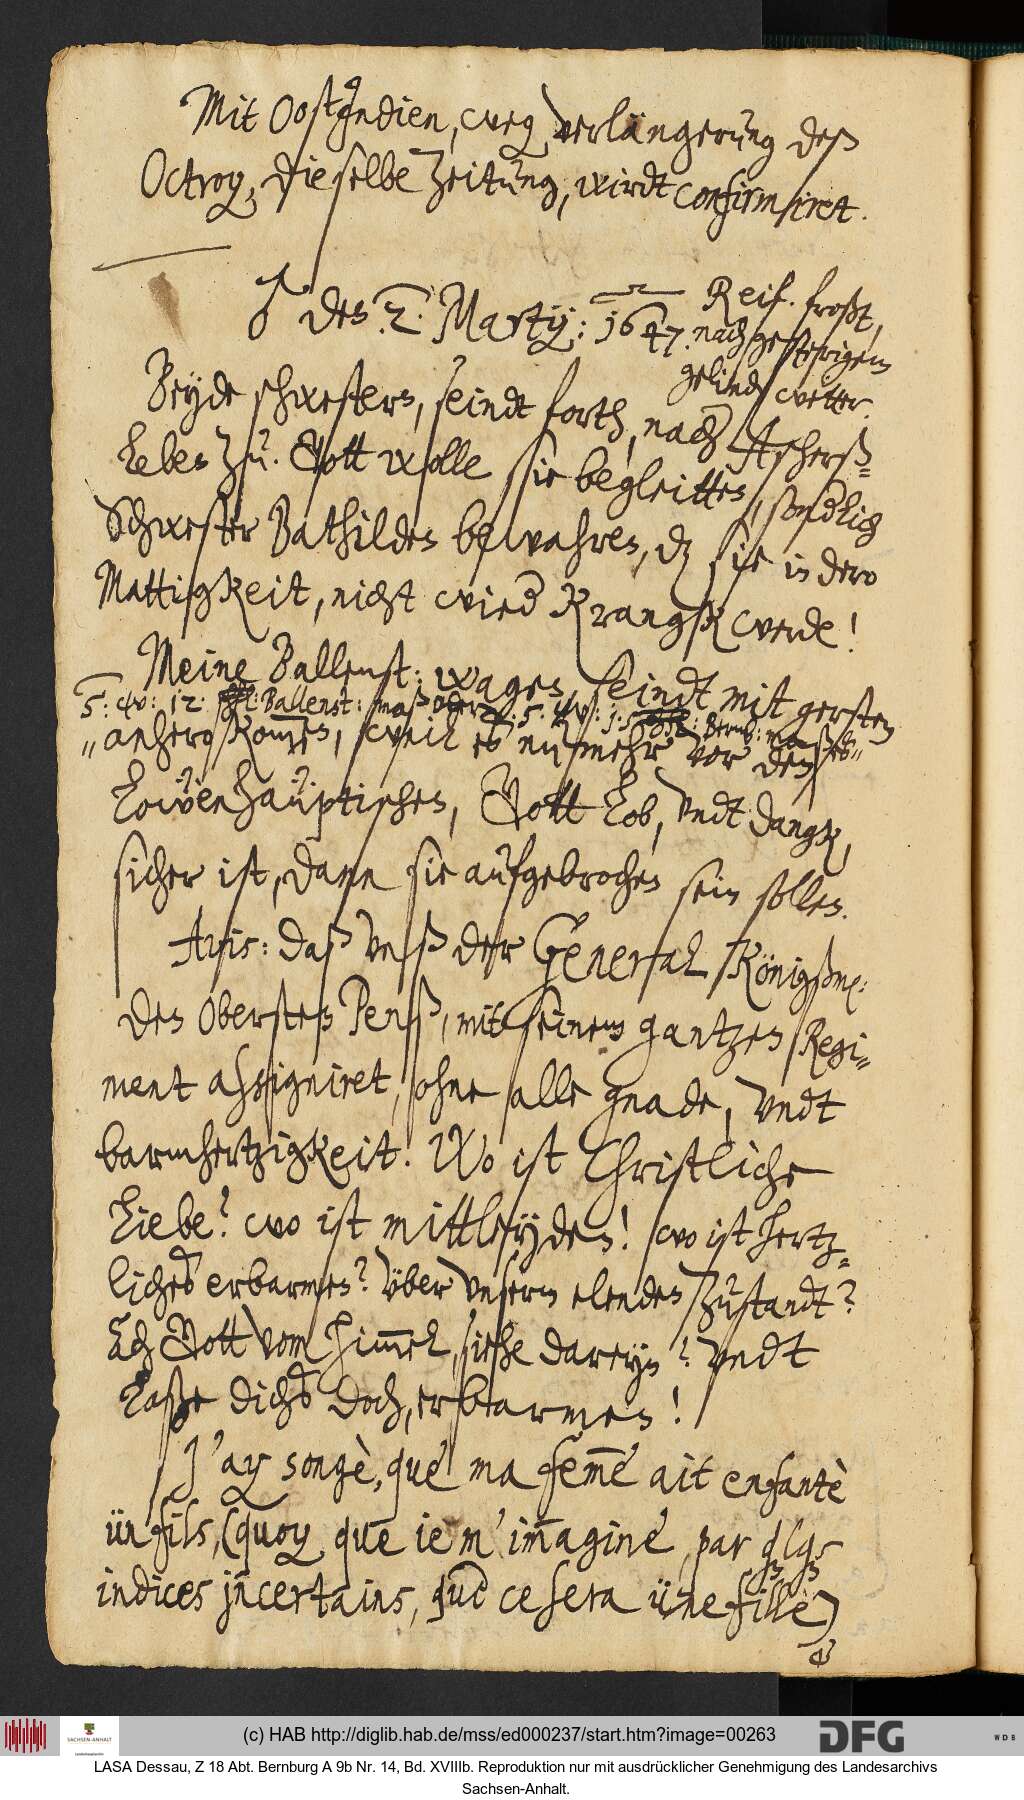 Mit OostJndien, weg, verlängerung deß
Octroy, dieselbe zeitung, wirdt confirmiret.
♂ des .2. Martij: 1647.
Reif. froßt,
nach gesterigem
gelindem wetter.
Beyde schwestern, seindt forth, nach Ascherß=
leben zu. Gott wolle sie begleitten, sonderlich
Schwester Bathilden bewahren, daß sie in dero
Mattigkeit, nicht wieder Krangk werde!
Meine Ballenst: wagen, seindt mit gersten
5: w: 12: Ballenst: maß oder 5: w: Bernb: maßes
anhero kommen, weil es nunmehr vor den
Löwenhäuptischen, Gott lob, vndt dangk,
sicher ist, dann sie aufgebrochen sein sollen.
Avis: daß vnß der General Königßm:
den Obersten Penß, mit seinem gantzen Regi=
ment assigniret, ohne alle gnade, vndt
barmhertzigkeit. Wo ist Christliche
Liebe? wo ist mittleyden! wo ist hertz=
liches erbarmen? über vnserm elenden zustandt?
Ach Gott vom himmel, siehe dareyn! vndt
Laße dichs doch, erbarmen!
J'ay songè, que ma femme ait enfantè
ün fils, (quoy que ie m'immagine, par qlqs
indices jncertains, que ce sera üne fille)
(c) HAB http://diglib.hab.de/mss/ed000237/start.htm?image=00263
SACHSEN-ANHALT
DFG
WDB
LASA Dessau, Z 18 Abt. Bernburg A 9b Nr. 14, Bd. XVIIIb. Reproduktion nur mit ausdrücklicher Genehmigung des Landesarchivs
Sachsen-Anhalt.